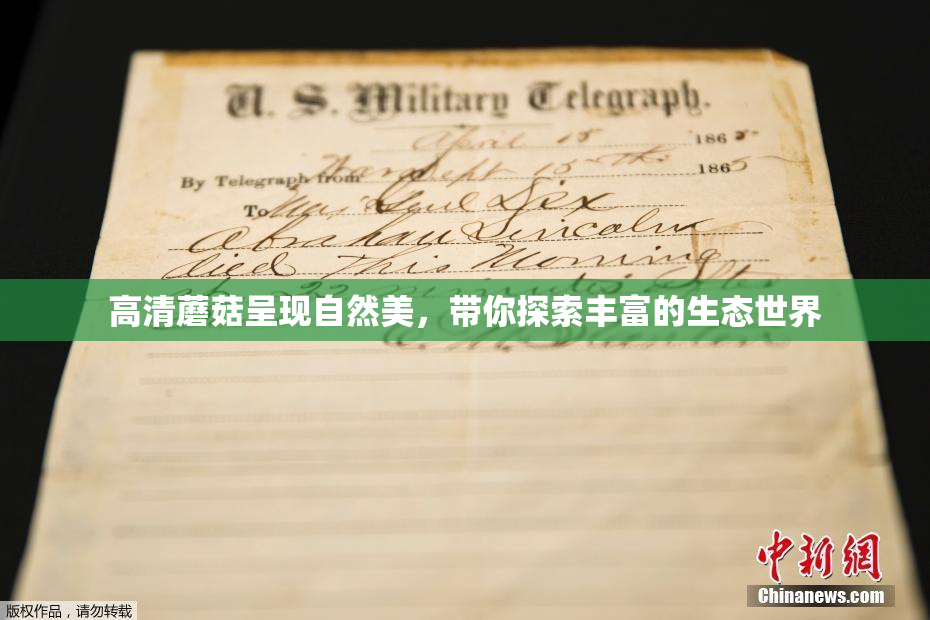 U. S. Military Telegraph.
April 15 1865
By Telegraph from War Dept 15th 1865
To Maj Genl Dix
Abraham Lincoln
died This Morning
at 22 minutes after
高清蘑菇呈现自然美，带你探索丰富的生态世界
E. M. Stanton
中新網
Chinanews.com
版权作品，请勿转载